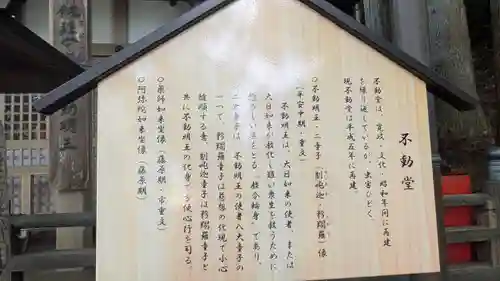 不動堂
不動堂は、寛永・文化・昭和年間に再建
を繰り返しているが、虫害ひどく、
現不動堂は平成五年に再建
○不動明王・二童子(制吒迦・矜羯羅)像
(平安中期・重文)
不動明王は、大日如来の使者、または
大日如来が教化し難い衆生を救うために
忿怒の姿をとる「教令輪身」であり、
二童子は、不動明王の使者八大童子の
一つで、矜羯羅童子は慈悲の化現で小心
随順する者、制吒迦童子は矜羯羅童子と
共に不動明王の化身で使心行を司る。
○薬師如来坐像(藤原期・市重文)
○阿弥陀如来坐像(藤原期)
動明王